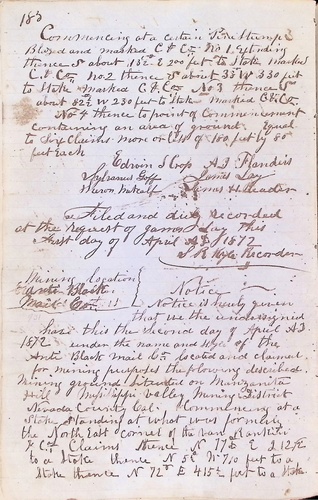 183
Commencing at a certain Pine Stump
Blazed and marked C & Co No 1. Extending
thence S about 15° E 200 feet to Stake marked
C & Co No 2 thence S about 33° W 330 feet
to Stake marked C & Co No 3 thence S
about 82½ W 230 feet to Stake marked C & Co
No 4 thence to point of Commencement
containing an area of ground Equal
to Six Claims more or less of 180 feet by 80
feet Each
Edwin S Crop A J Flanders
Sylvanus Goff James Lay
Metcalf James H Leader
Filed and duly recorded
at the request of James Lay this
first day of April AD 1872
Recorder
Mining Location
Anti Black
Mail Co
Notice
Notice is hereby given
that we the undersigned
have this the second day of April AD
1872 under the name and style of the
Anti Black mail Co located and claimed
for mining purposes the following described
Mining ground Situated on Manzanita
Hill Mississippi Valley Mining District
Nevada County Cal. Commencing at a
Stake standing at what was formerly
the North East corner of the
& Co Claims thence N 77° E 212 ft
to a Stake thence N 5° W 710 feet to a
Stake thence N 72° E 415 feet to a Stake